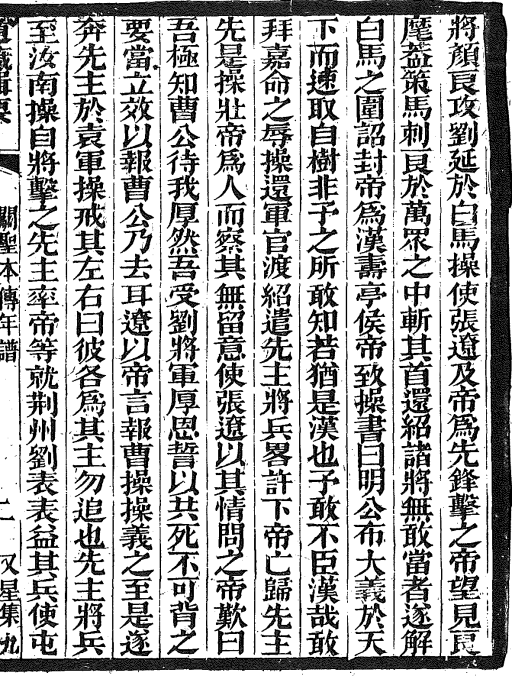 將顏良攻劉延於白馬操使張遼及帝爲先鋒擊之帝望見良
麾蓋策馬刺良於萬眾之中斬其首還紹諸將無敢當者遂解
白馬之圍詔封帝爲漢壽亭侯帝致操書曰明公布大義於天
下而速取自樹非予之所敢知若猶是漢也予敢不臣漢哉敢
拜嘉命之辱操還軍官渡紹遣先主將兵畧許下帝亡歸先主
先是操壯帝爲人而察其無留意使張遼以其情問之帝歎曰
吾極知曹公待我厚然吾受劉將軍厚恩誓以共死不可背之
要當立效以報曹公乃去耳遼以帝言報曹操操義之至是遂
奔先主於袁軍操戒其左右曰彼各爲其主勿追也先主將兵
至汝南操自將擊之先主率帝等就荆州劉表表益其兵使屯
道藏輯要 關聖本傳年譜 二 又星集九